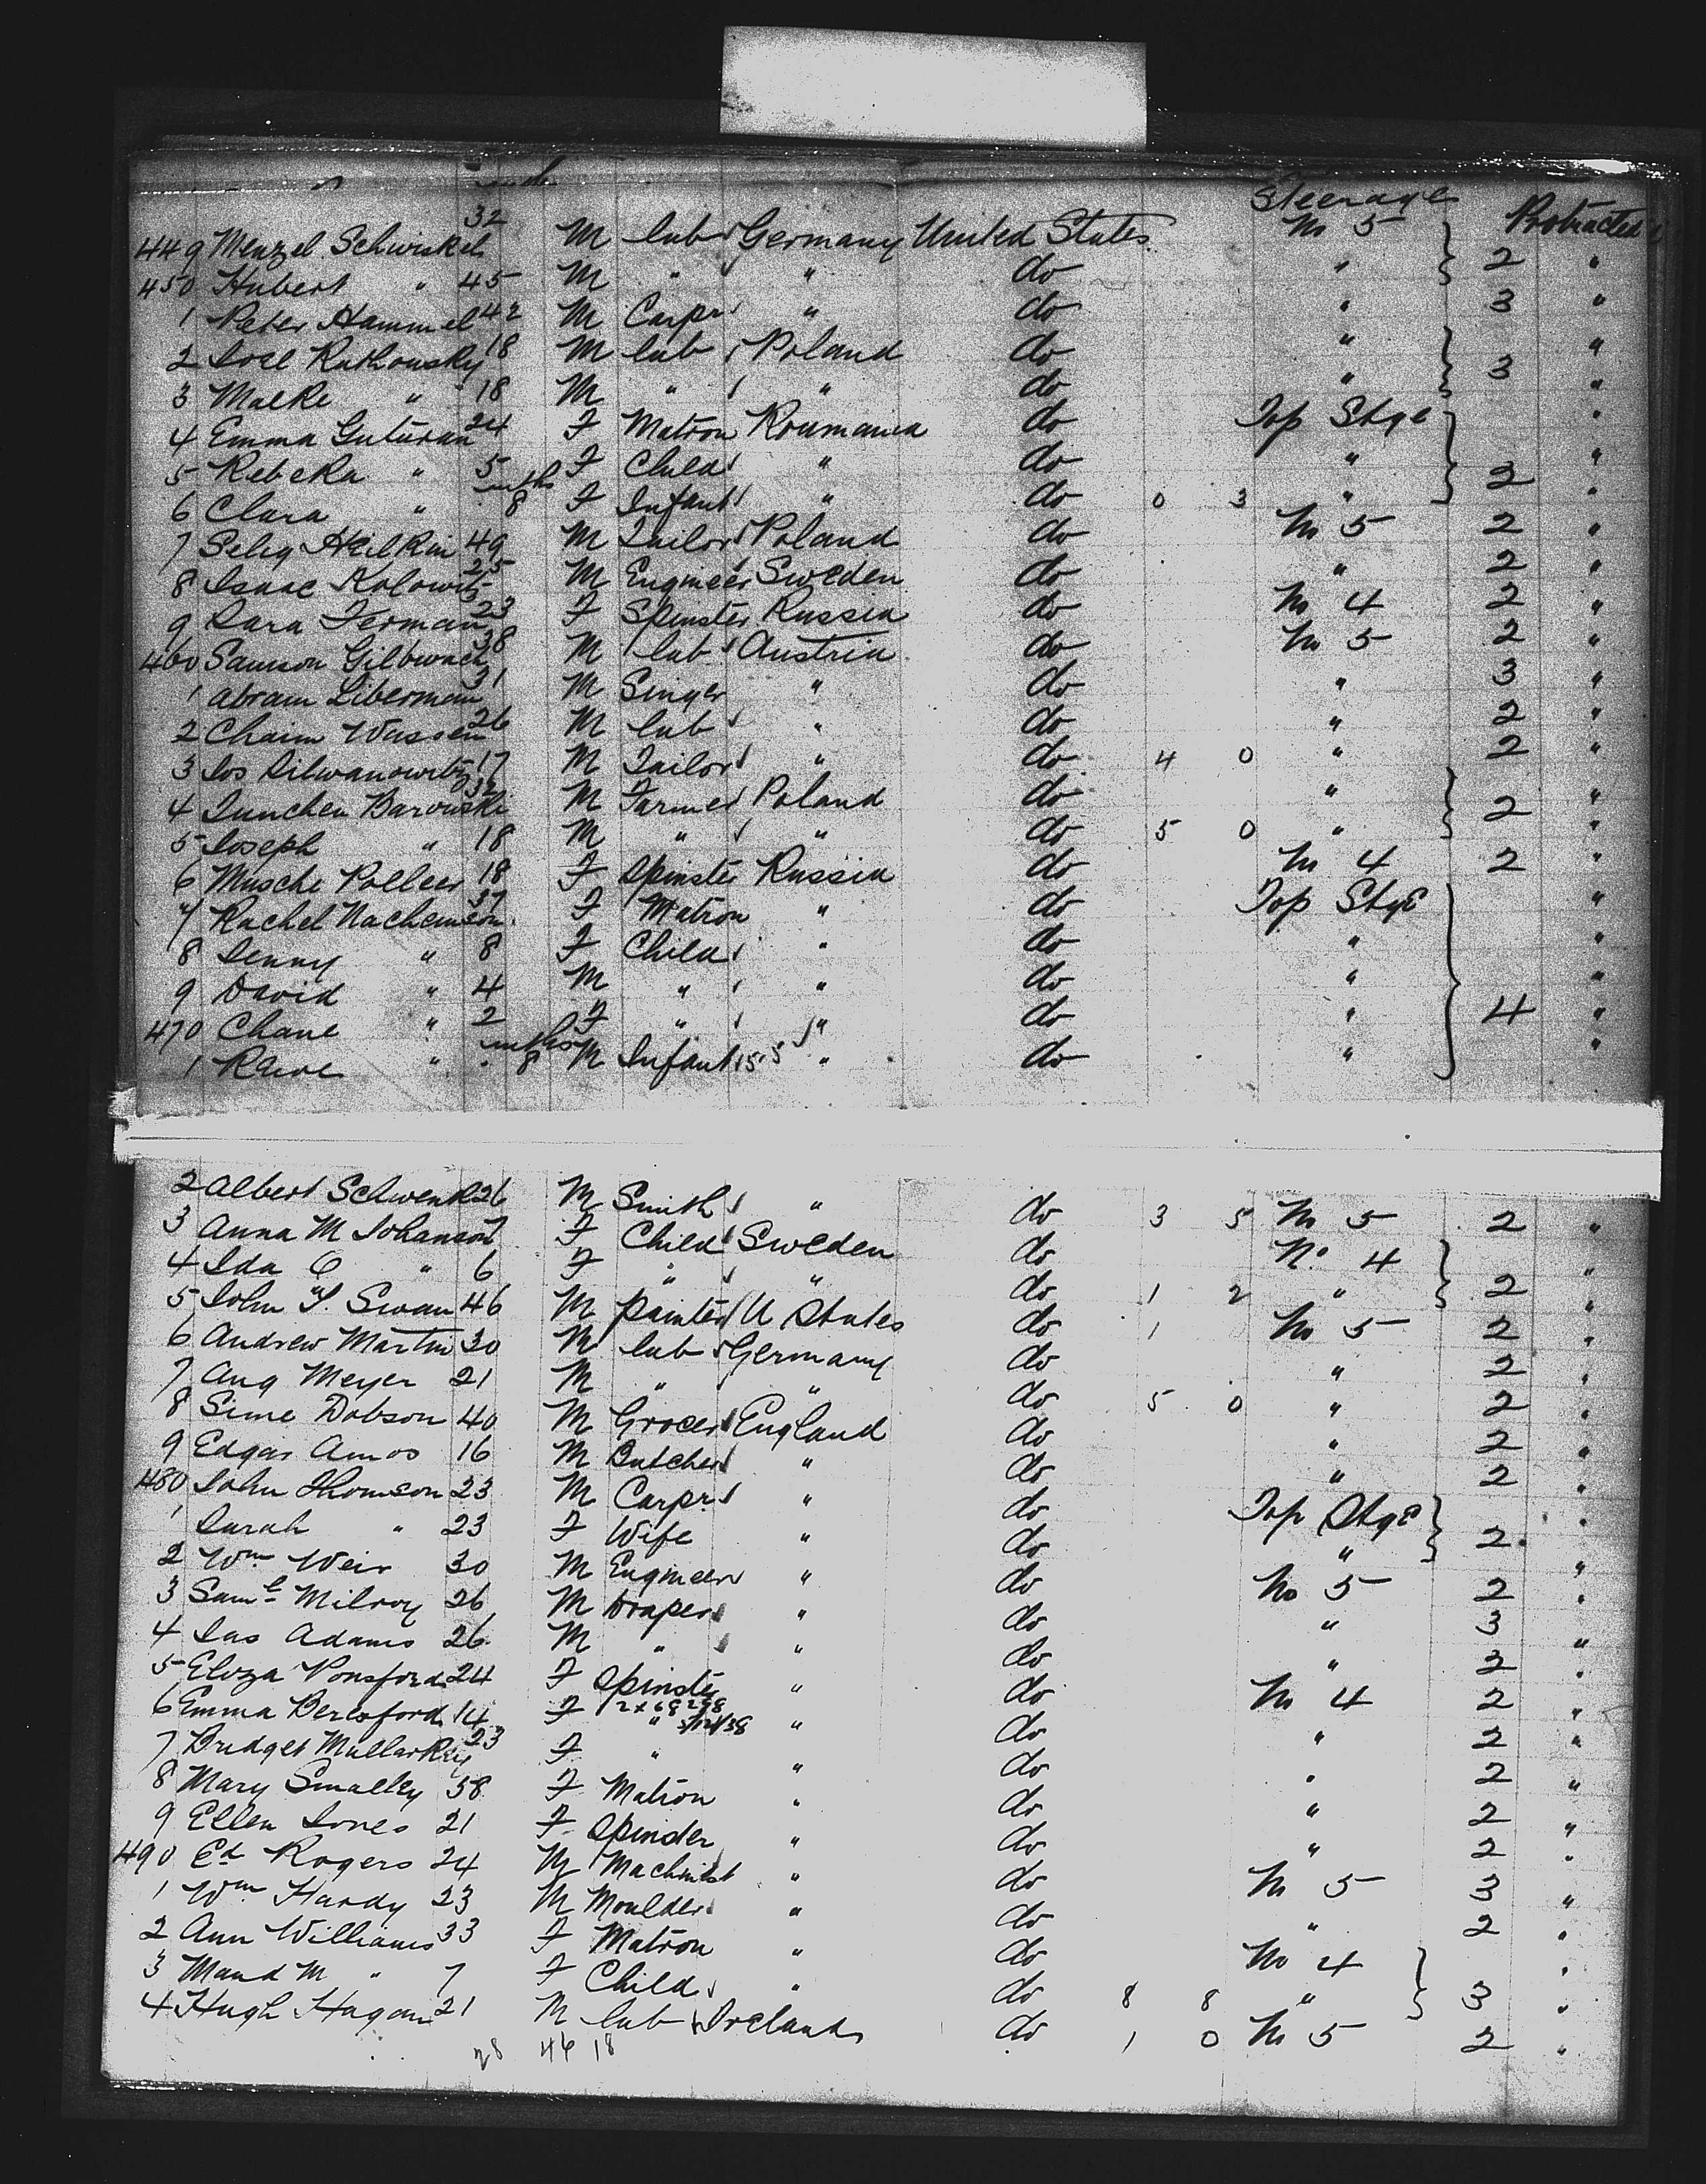 mths
Steerage
449 Menzel Schwiskel 32 M lab Germany United States No 5 2 Protracted
450 Hubert " 45 M " " do " "
1 Peter Hammel 42 M Carpr " do " 3 "
2 Joel Rutkowsky 18 M lab Poland do " 3 "
3 Malke " 18 M " " do " "
4 Emma Guturan 24 F Matron Roumania do Top Stge 2 "
5 Rebeka " 5 F Child " do " "
6 Clara " mths 8 F Infant " do 0 3 " "
7 Selig 49 M Tailor Poland do No 5 2 "
8 Isaac Kolowitz 25 M Engineer Sweden do " 2 "
9 Sara Ferman 23 F Spinster Russia do No 4 2 "
460 Samson 38 M lab Austria do No 5 2 "
1 Abram Liberman 31 M Singer " do " 3 "
2 Chaim Wassen 26 M lab " do " 2 "
3 Jos Silwanowitz 17 M Tailor " do 4 0 " 2 "
4 Barowski 32 M Farmer Poland do " 2 "
5 Joseph " 18 M " " do 5 0 " "
6 Musche 18 F Spinster Russia do No 4 2 "
7 Rachel Nachemson 37 F Matron " do Top StgE 4 "
8 Jenny " 8 F Child " do " "
9 David " 4 M " " do " "
470 Chane " 2 F " " do " "
1 " mths 8 M Infant 15 5 " do " "
2 Albert Schwenk 26 M Smith " do 3 5 No 5 2 "
3 Anna M Johanson 7 F Child Sweden do No. 4 2 "
4 Ida C " 6 F " " do 1 2 " "
5 John S. Swan 46 M painter U States do 1 No 5 2 "
6 Andrew Martin 30 M lab Germany do " 2 "
7 Aug Meyer 21 M " " do 5 0 " 2 "
8 Sime Dobson 40 M Grocer England do " 2 "
9 Edgar Amos 16 M Butcher " do " 2 "
480 John Thomson 23 M Carpr " do Top StgE 2 "
1 Sarah " 23 F Wife " do " "
2 Wm Weir 30 M Engineer " do No 5 2 "
3 Saml Milroy 26 M Draper " do " 3 "
4 Jas Adams 26 M " " do " 2 "
5 Eliza Ponsford 24 F Spinster " do No 4 2 "
6 Emma Beresford 14 F " " do " 2 "
7 Bridget Mullarkey 23 F " " do " 2 "
8 Mary Smalley 58 F Matron " do " 2 "
9 Ellen Jones 21 F Spinster " do " 2 "
490 Ed Rogers 24 M Machinist " do No 5 3 "
1 Wm Hardy 23 M Moulder " do " 2 "
2 Ann Williams 33 F Matron " do No 4 3 "
3 Maud M " 7 F Child " do 8 8 " "
4 Hugh Hagan 21 M lab Ireland do 1 0 No 5 2 "
28 46 18